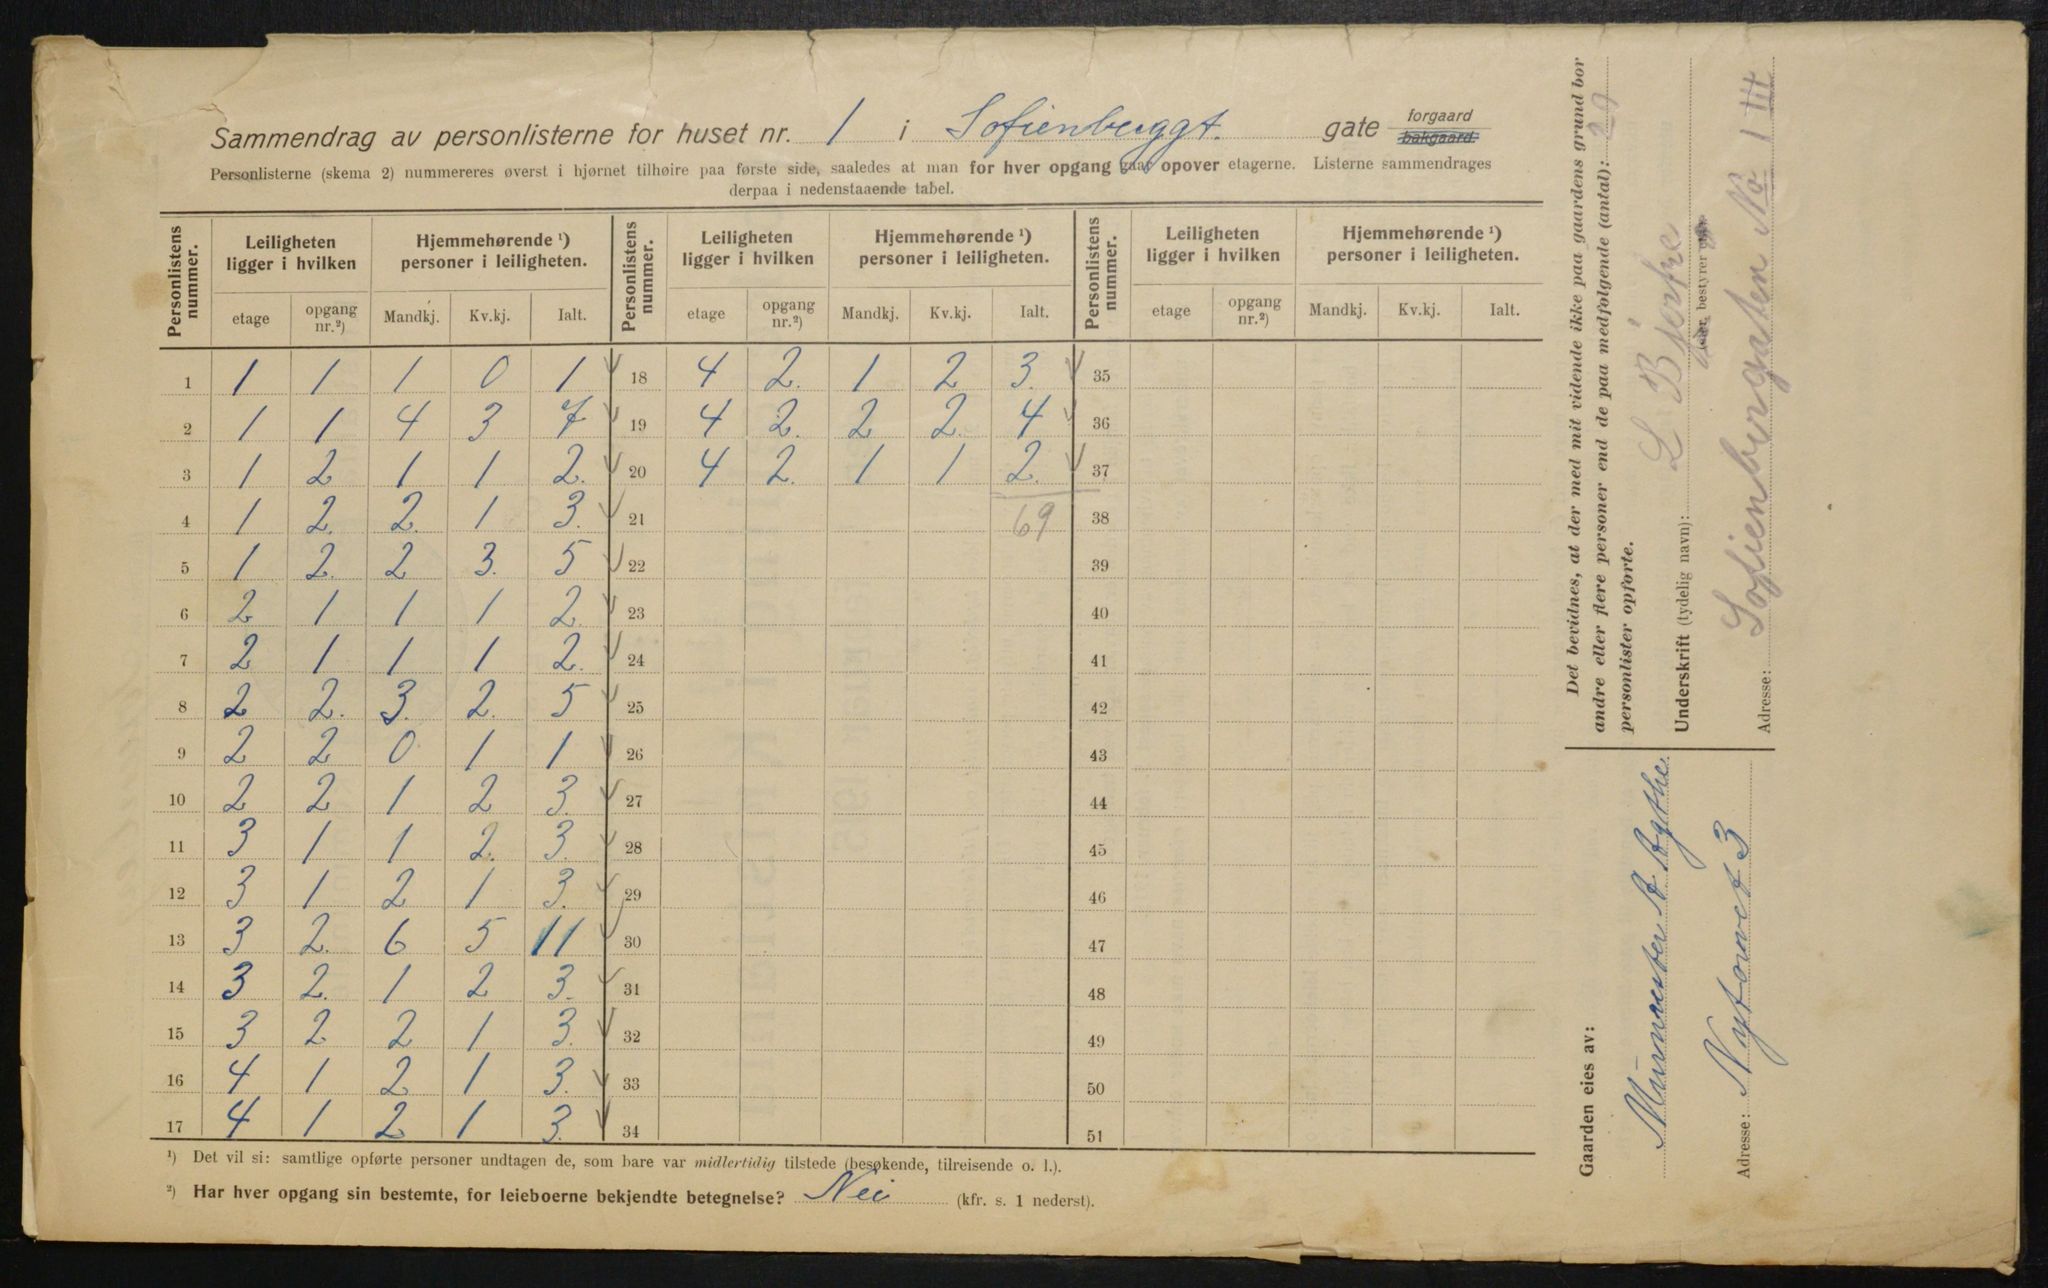 Sammendrag av personlisterne for huset nr. 1 i Sofienberggt. gate forgaard bakgaard.
Personlisterne (skema 2) nummereres øverst i hjørnet tilhøire paa første side, saaledes at man for hver opgang gaar opover etagerne. Listerne sammendrages
derpaa i nedenstaaende tabel.
Personlistens nummer. Leiligheten ligger i hvilken Hjemmehørende ¹) personer i leiligheten. Personlistens nummer. Leiligheten ligger i hvilken Hjemmehørende ¹) personer i leiligheten. Personlistens nummer. Leiligheten ligger i hvilken Hjemmehørende ¹) personer i leiligheten.
etage opgang nr.²) Mandkj. Kv.kj. Ialt. etage opgang nr.²) Mandkj. Kv.kj. Ialt. etage opgang nr.²) Mandkj. Kv.kj. Ialt.
1 1 1 1 0 1 18 4 2. 1 2 3. 35
2 1 1 4 3 7 19 4 2. 2 2. 4 36
3 1 2 1 1 2. 20 4 2. 1 1 2. 37
4 1 2. 2. 1 3. 21 69 38
5 1 2. 2 3. 5 22 39
6 2 1 1 1 2. 23 40
7 2 1 1 1 2. 24 41
8 2 2. 3. 2. 5 25 42
9 2 2 0 1 1 26 43
10 2 2 1 2 3. 27 44
11 3 1 1 2. 3. 28 45
12 3 1 2 1 3. 29 46
13 3 2. 6 5 11 30 47
14 3 2. 1 2 3. 31 48
15 3 2 2 1 3. 32 49
16 4 1 2 1 3. 33 50
17 4 1 2 1 3. 34 51
¹) Det vil si: samtlige opførte personer undtagen de, som bare var midlertidig tilstede (besøkende, tilreisende o. l.).
²) Har hver opgang sin bestemte, for leieboerne bekjendte betegnelse? Nei (kfr. s. 1 nederst).
Det bevidnes, at der med mit vidende ikke paa gaardens grund bor
andre eller flere personer end de paa medfølgende (antal): 20
personlister opførte.
Underskrift (tydelig navn): L Bjerke
bestyrer
Adresse: Sofienberggaten No 1 III
Gaarden eies av:
Mürmester A. Agthe.
Adresse: Nytorvet 3